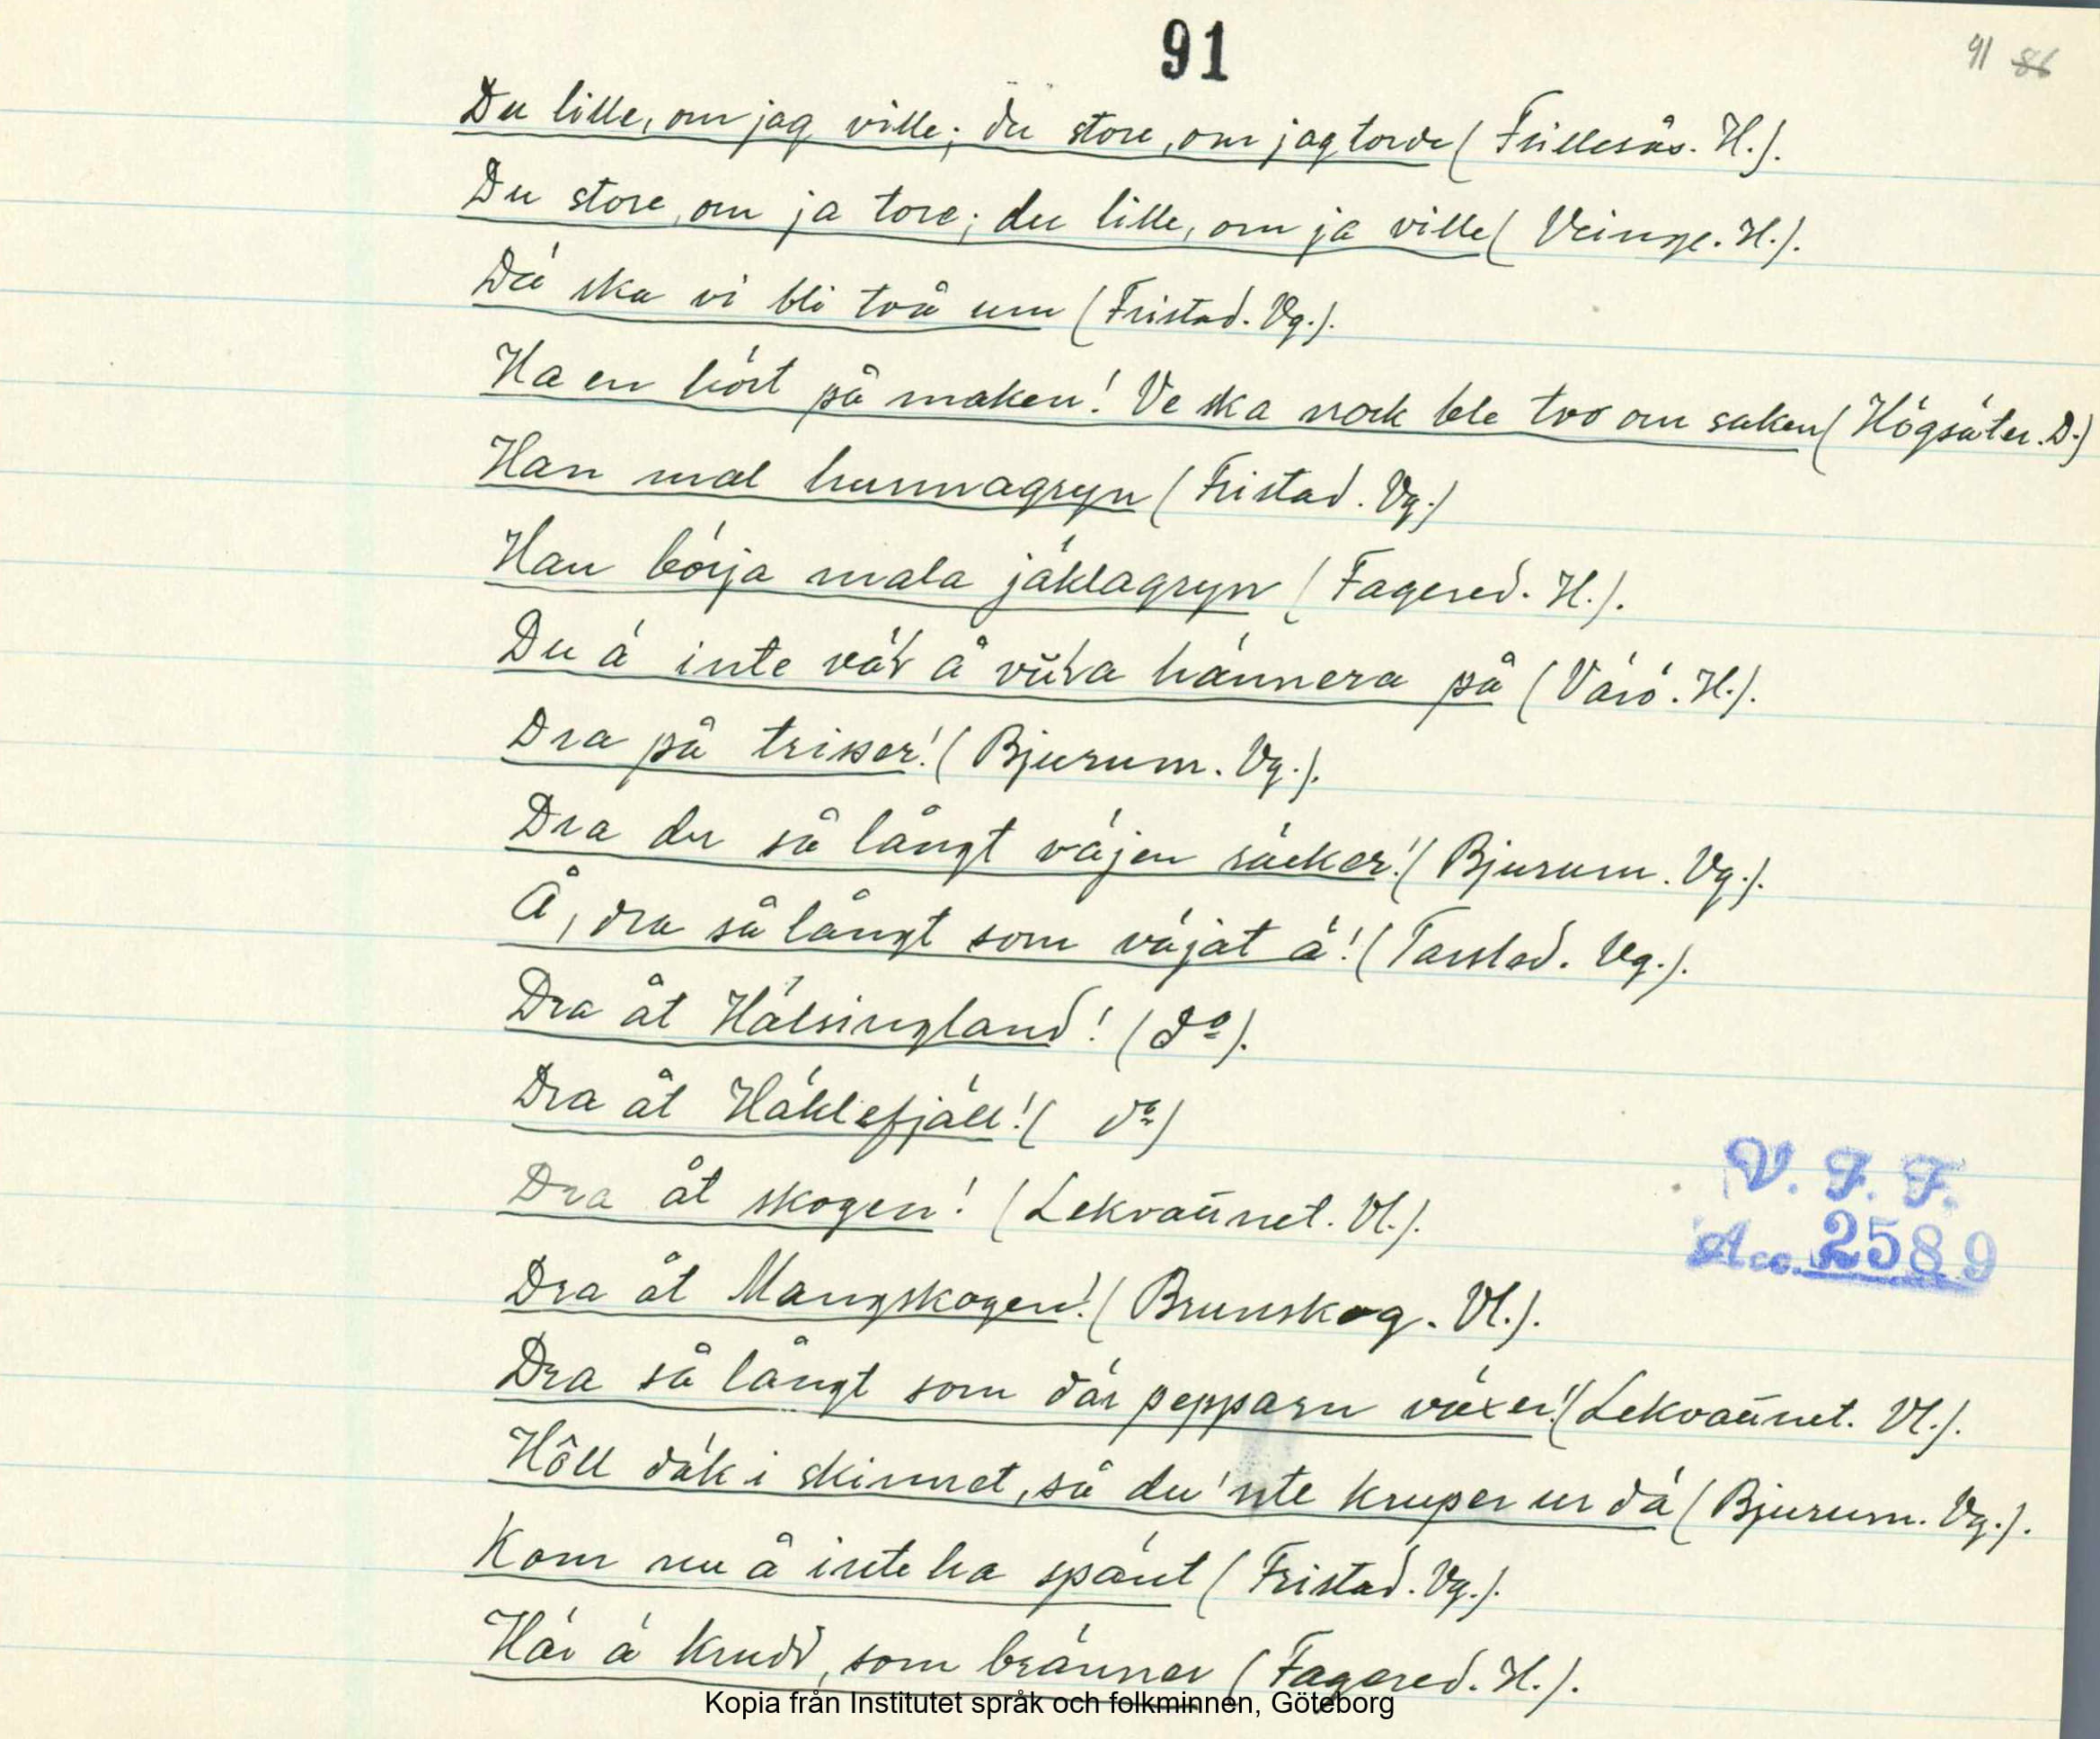 91
91 86
Du lille, om jag ville; du store, om jag torde (Frillesås. H.).
Du store, om ja tore; du lille, om ja ville (Veinge. H.).
Dä ska vi bli två um (Fristad. Vg.).
Ha en hört på maken! Ve ska nock ble tvo om saken (Högsäter. D.)
Han mal hunnagryn (Fristad. Vg.)
Han börja mala jäklagryn (Fagered. H.).
Du ä inte vät å vüta hännera på (Värö. H.).
Dra på trisser! (Bjurum. Vg.).
Dra du så långt väjen räcker! (Bjurum. Vg.).
Å, dra så långt som väjat ä! (Tarsled. Vg.).
Dra åt Hälsingland! (do).
Dra åt Häklefjäll! (do)
Dra åt skogen! (Lekvattnet. Vl.).
Dra åt Mangskogen! (Brunskog. Vl.).
Dra så långt som där pepparn växer! (Lekvattnet. Vl.).
Hôll däk i skinnet, så du 'nte kruper ur dä (Bjurum. Vg.).
Kom nu å inte ha spänt (Fristad. Vg.).
Här ä krudd, som bränner (Fagered. H.).
V. F. F.
Acc. 2589
Kopia från Institutet språk och folkminnen, Göteborg